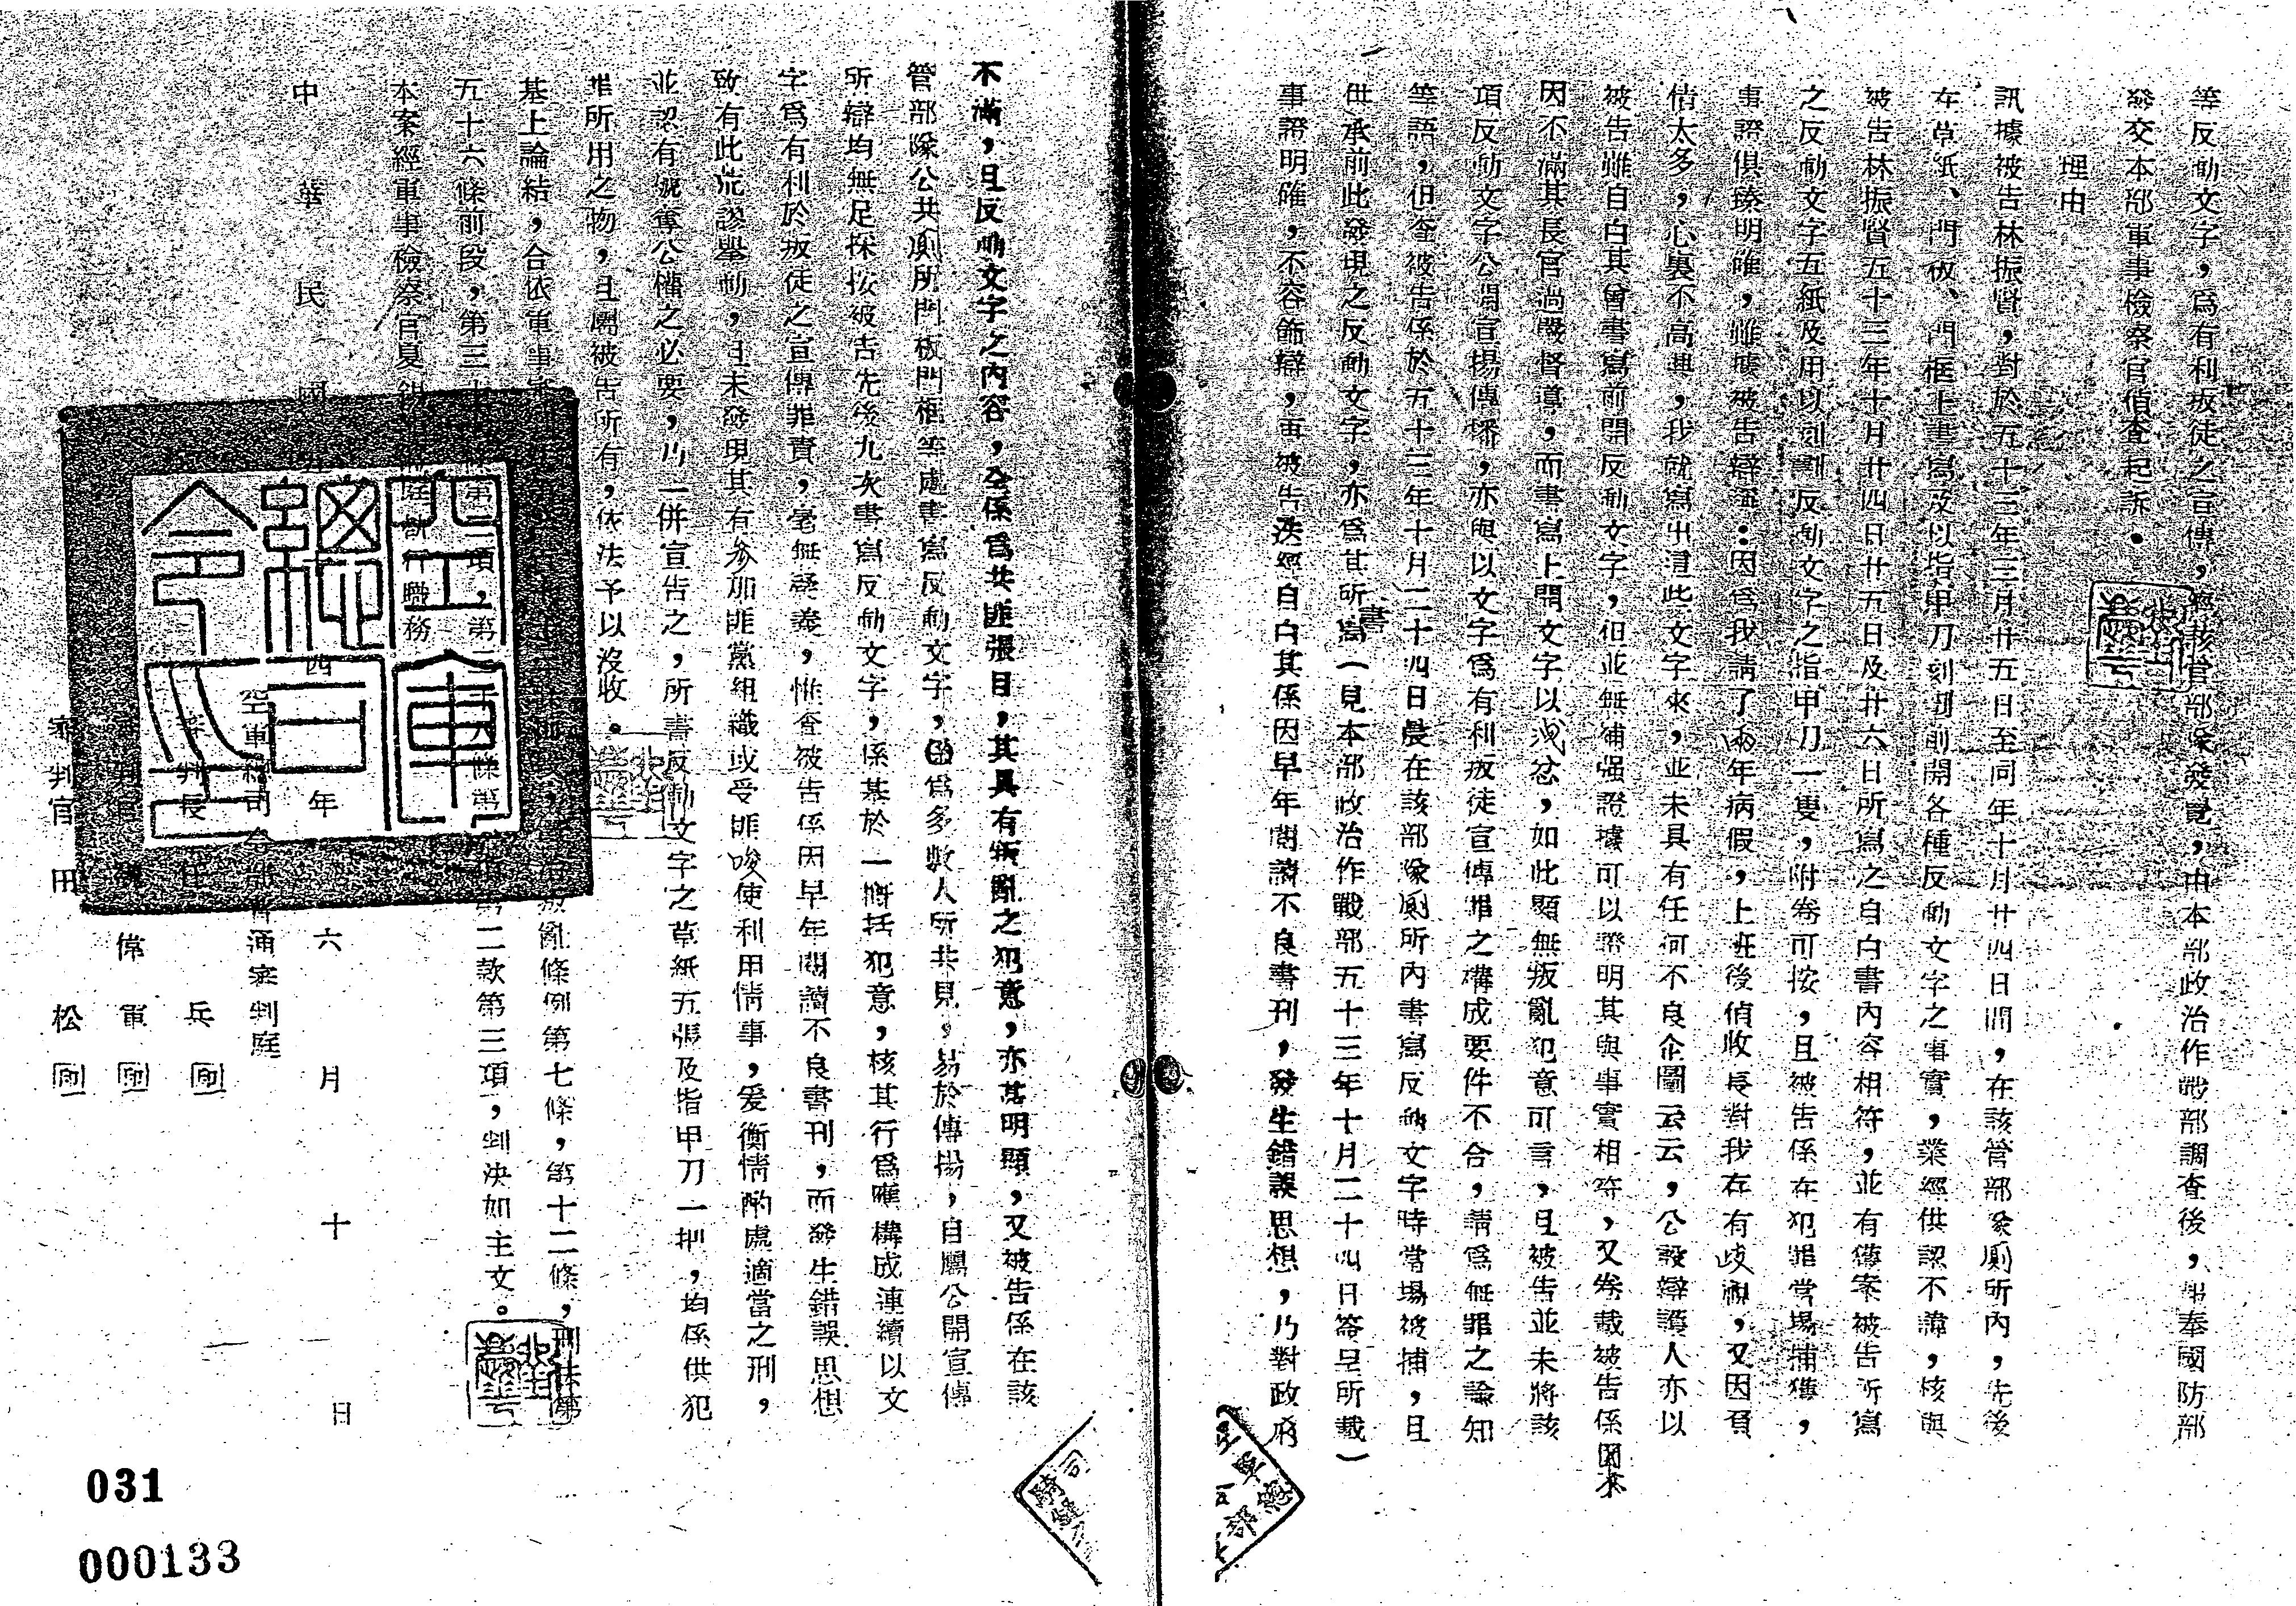 等反動文字，為有利叛徒之宣傳，經該管部隊發覺，由本部政治作戰部調查後，報奉國防部
發交本部軍事檢察官偵查起訴。
理由
訊據被告林振賢，對於五十三年三月廿五日至同年十月廿四日間，在該管部隊廁所內，先後
在草紙、門板、門框上書寫及以指甲刀刻劃前開各種反動文字之事實，業經供認不諱，核與
被告林振賢五十三年十月廿四日廿五日及廿六日所寫之自白書內容相符，並有獲案被告所寫
之反動文字五紙及用以刻劃反動文字之指甲刀一隻，附卷可按，且被告係在犯罪當場捕獲，
事證俱臻明確，雖據被告辯稱：因為我請了兩年病假，上班後偵收長對我存有歧視，又因負
債太多，心裏不高興，我就寫出這些文字來，並未具有任何不良企圖云云，公設辯護人亦以
被告雖自白其曾書寫前開反動文字，但並無補強證據可以證明其與事實相符，又卷載被告係
因不滿其長官過嚴督導，而書寫上開文字以洩忿，如此顯無叛亂犯意可言，且被告並未將該
項反動文字公開宣揚傳播，亦與以文字為有利叛徒宣傳罪之構成要件不合，請為無罪之諭知
等語，但查被告係於五十三年十月二十四日晨在該部隊廁所內書寫反動文字時當場被捕，且
供承前此發現之反動文字，亦為其所書寫（見本部政治作戰部五十三年十月二十四日簽呈所載）
事證明確，不容飾辯，再被告迭經自白其係因早年閱讀不良書刊，發生錯誤思想，乃對政府
不滿，且反動文字之內容，全係為共匪張目，其具有叛亂之犯意，亦甚明顯，又被告係在該
管部隊公共廁所門板門框等處書寫反動文字，因為多數人所共見，易於傳揚，自屬公開宣傳
所辯均無足採按被告先後九次書寫反動文字，係基於一概括犯意，核其行為應構成連續以文
字為有利於叛徒之宣傳罪責，毫無疑義，惟查被告係因早年閱讀不良書刊，而發生錯誤思想
致有此荒謬舉動，且未發現其有參加匪黨組織或受匪唆使利用情事，爰衡情酌處適當之刑，
並認有褫奪公權之必要，以一併宣告之，所書反動文字之草紙五張及指甲刀一把，均係供犯
罪所用之物，且屬被告所有，依法予以沒收。
基上論結，合依軍事審 叛亂條例第七條，第十二條，刑法第
五十六條前段，第三十 第二項，第三十八條第 項第二款第三項，判決如主文。
本案經軍事檢察官夏 庭執行職務
中華民國五十四年六月十日
空軍總司令部普通審判庭
審判長 任 兵 印
審判官 偉軍 印
審判官 田 松 印
空軍總司令部
司 騎縫
空軍總司令印
031
000133